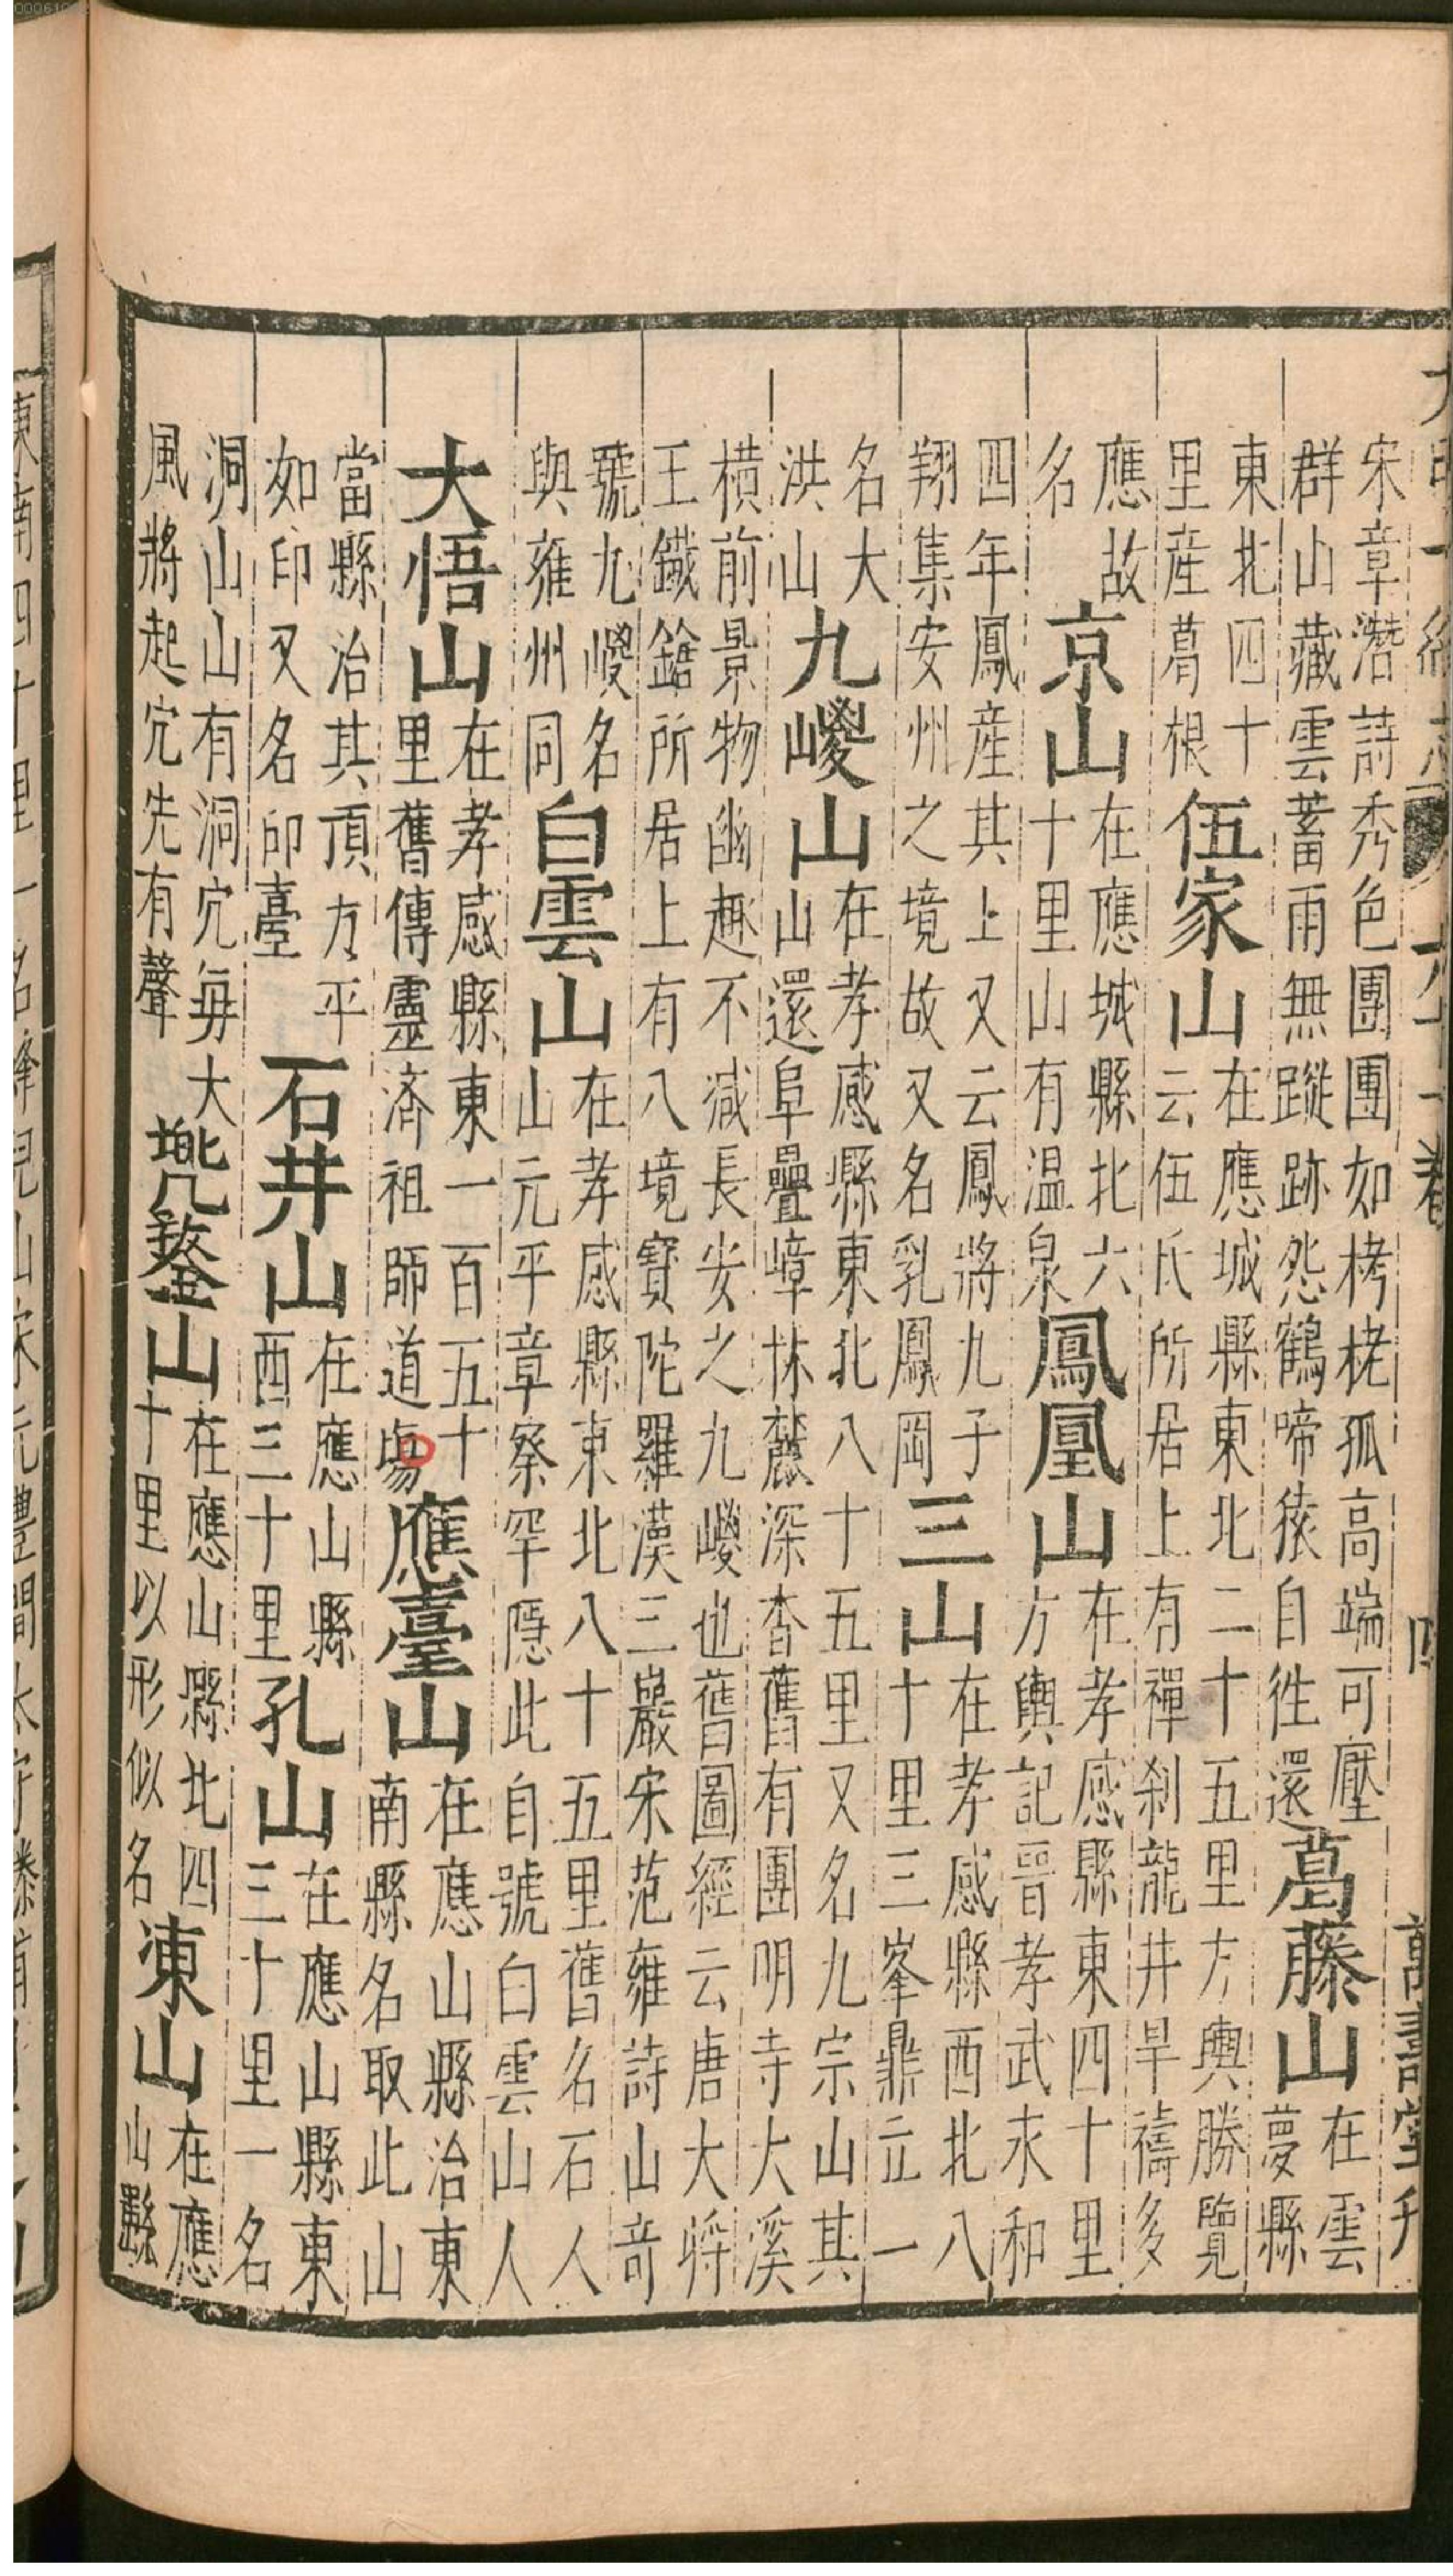 宋章濳詩秀色團團如栲栳孤高端可壓
群山藏雲蓄雨無蹤跡怨鶴啼猿自徃還
葛藤山
在雲
夢縣
東北四十
里産葛根
伍家山
在應城縣東北二十五里方輿勝覽
云伍氏所居上有禪刹龍井旱禱多
應故
名
京山
在應城縣北六
十里山有温泉
鳳凰山
在孝感縣東四十里
方輿記晉孝武永和
四年鳳産其上又云鳳將九子
翔集安州之境故又名乳鳳岡
三山
在孝感縣西北八
十里三峯鼎立一
名大
洪山
九嵕山
在孝感縣東北八十五里又名九宗山其
山還阜疊嶂林麓深杳舊有團明寺大溪
橫前景物幽趣不减長安之九嵕也舊圖經云唐大將
王鐵鎗所居上有八境寶陀羅漢三巖宋范雍詩山奇
號九嵕名
與雍州同
白雲山
在孝感縣東北八十五里舊名石人
山元平章察罕隱此自號白雲山人
大悟山
在孝感縣東一百五十
里舊傳靈济祖師道塲
應臺山
在應山縣治東
南縣名取此山
當縣治其頂方平
如印又名印臺
石井山
在應山縣
西三十里
孔山
在應山縣東
三十里一名
洞山山有洞穴每大
風將起穴先有聲
兠鍪山
在應山縣北四
十里以形似名
東山
在應
山縣
萬壽堂刋